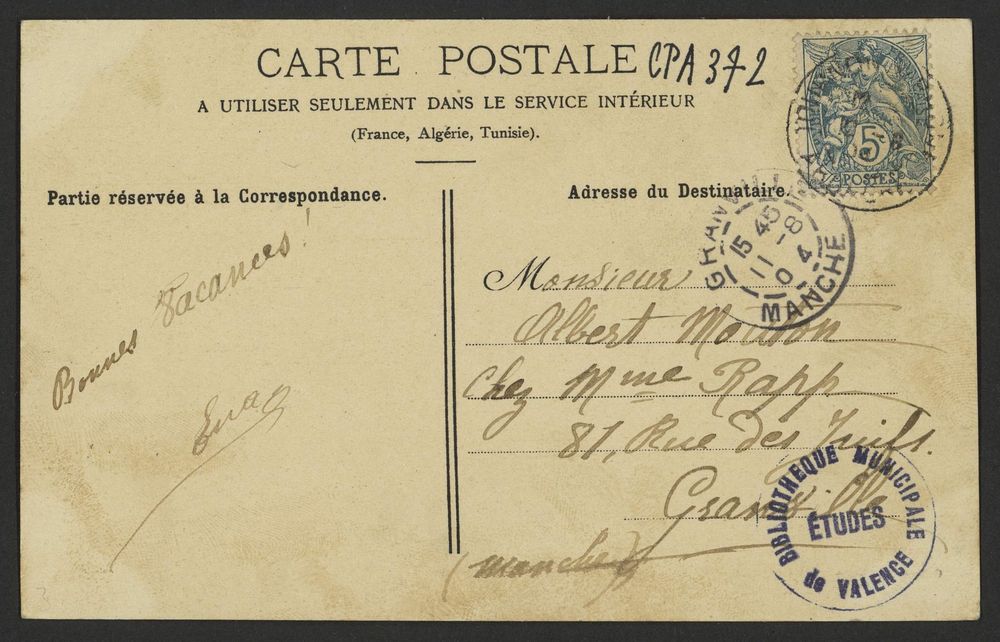 CARTE POSTALE CPA 372
A UTILISER SEULEMENT DANS LE SERVICE INTÉRIEUR
(France, Algérie, Tunisie).
Partie réservée à la Correspondance.
Bonnes Vacances !
Adresse du Destinataire.
5
POSTES
GRANVILLE
15 45
11 - 8
04
MANCHE
Monsieur
Albert Mouton
Chez Mme Rapp
81, Rue des Juifs.
Granville
(manche)
BIBLIOTHEQUE MUNICIPALE
ÉTUDES
de VALENCE